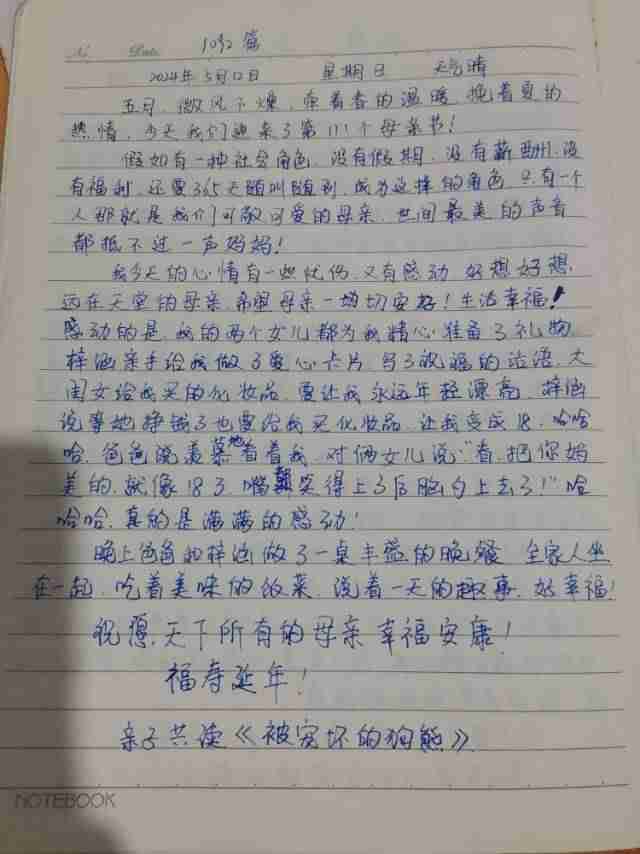 No. Date 1032篇
2024年5月12日 星期日 天气晴
五月,微风不燥,带着春的温暖,挽着夏的
热情,今天我们迎来了第111个母亲节!
假如有一种社会角色,没有假期,没有薪酬,没
有福利,还要365天随叫随到,成为这样的角色只有一个
人那就是我们可敬可爱的母亲,世间最美的声音
都抵不过一声妈妈!
我今天的心情有一些忧伤,又有感动 好想好想
远在天堂的母亲,希望母亲一切安好!生活幸福!
感动的是,我的两个女儿都为我精心准备了礼物
梓涵亲手给我做了爱心卡片,写了祝福的话语,大
闺女给我买的化妆品,要让我永远年轻漂亮,梓涵
说等她挣钱了也要给我买化妆品,让我变成18,哈哈
哈,爸爸羡慕地看着我,对俩女儿说:“看,把你妈
美的,就像18了,嘴都笑得上了后脑勺上去了!”哈
哈哈,真的是满满的感动!
晚上爸爸和梓涵做了一桌丰盛的晚餐 全家人坐
在一起,吃着美味的饭菜,说着一天的趣事,好幸福!
祝愿,天下所有的母亲幸福安康!
福寿延年!
亲子共读《被宠坏的狗熊》
NOTEBOOK